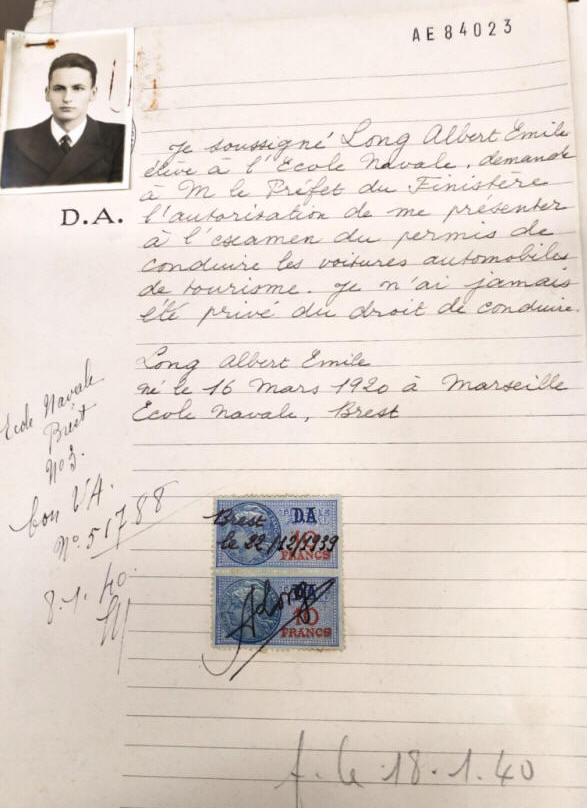 AE84023
Je soussigné Long Albert Emile
élève à l'Ecole Navale, demande
à M le Préfet du Finistère
D.A.
l'autorisation de me présenter
à l'examen du permis de
conduire les voitures automobiles
de tourisme. Je n'ai jamais
été privé du droit de conduire.
Long Albert Emile
né le 16 Mars 1920 à Marseille
Ecole Navale, Brest
Ecole Navale
Brest
N° 3.
bon VA.
N° 51788
8.1.40.
Brest
DA
le 22/12/1939
10
FRANCS
ALong
DA
10
FRANCS
f. le 18.1.40